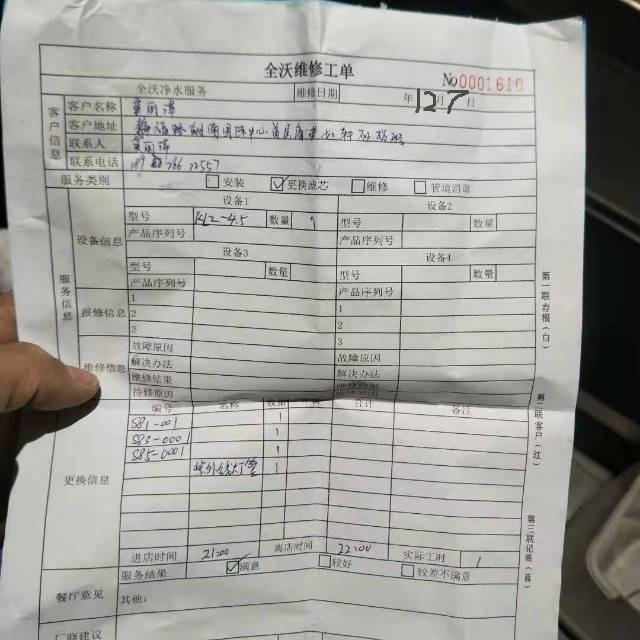 全沃维修工单
No 0001610
全沃净水服务 维修日期 年 12 月 7 日
客户信息
客户名称
客户地址
联系人
联系电话
服务类别 安装 ✓更换滤芯 维修 管道消毒
服务信息
设备信息
设备1 设备2
型号 KL2-4.5 数量 1 型号 数量
产品序列号 产品序列号
设备3 设备4
型号 数量 型号 数量
产品序列号 产品序列号
报修信息
1 1
2 2
3 3
维修信息
故障原因 故障原因
解决办法 解决办法
维修结果 维修结果
待修原因 待修原因
更换信息
编号 名称 数量 合计 备注
S81-001 1
S83-0001 1
S85-0001 1
紫外线灯管 1
进店时间 21:00 离店时间 22:00 实际工时 1
服务结果 ✓满意 较好 较差不满意
餐厅意见 其他:
厂商建议
第一联存根(白)
第二联客户(红)
第三联记帐(蓝)